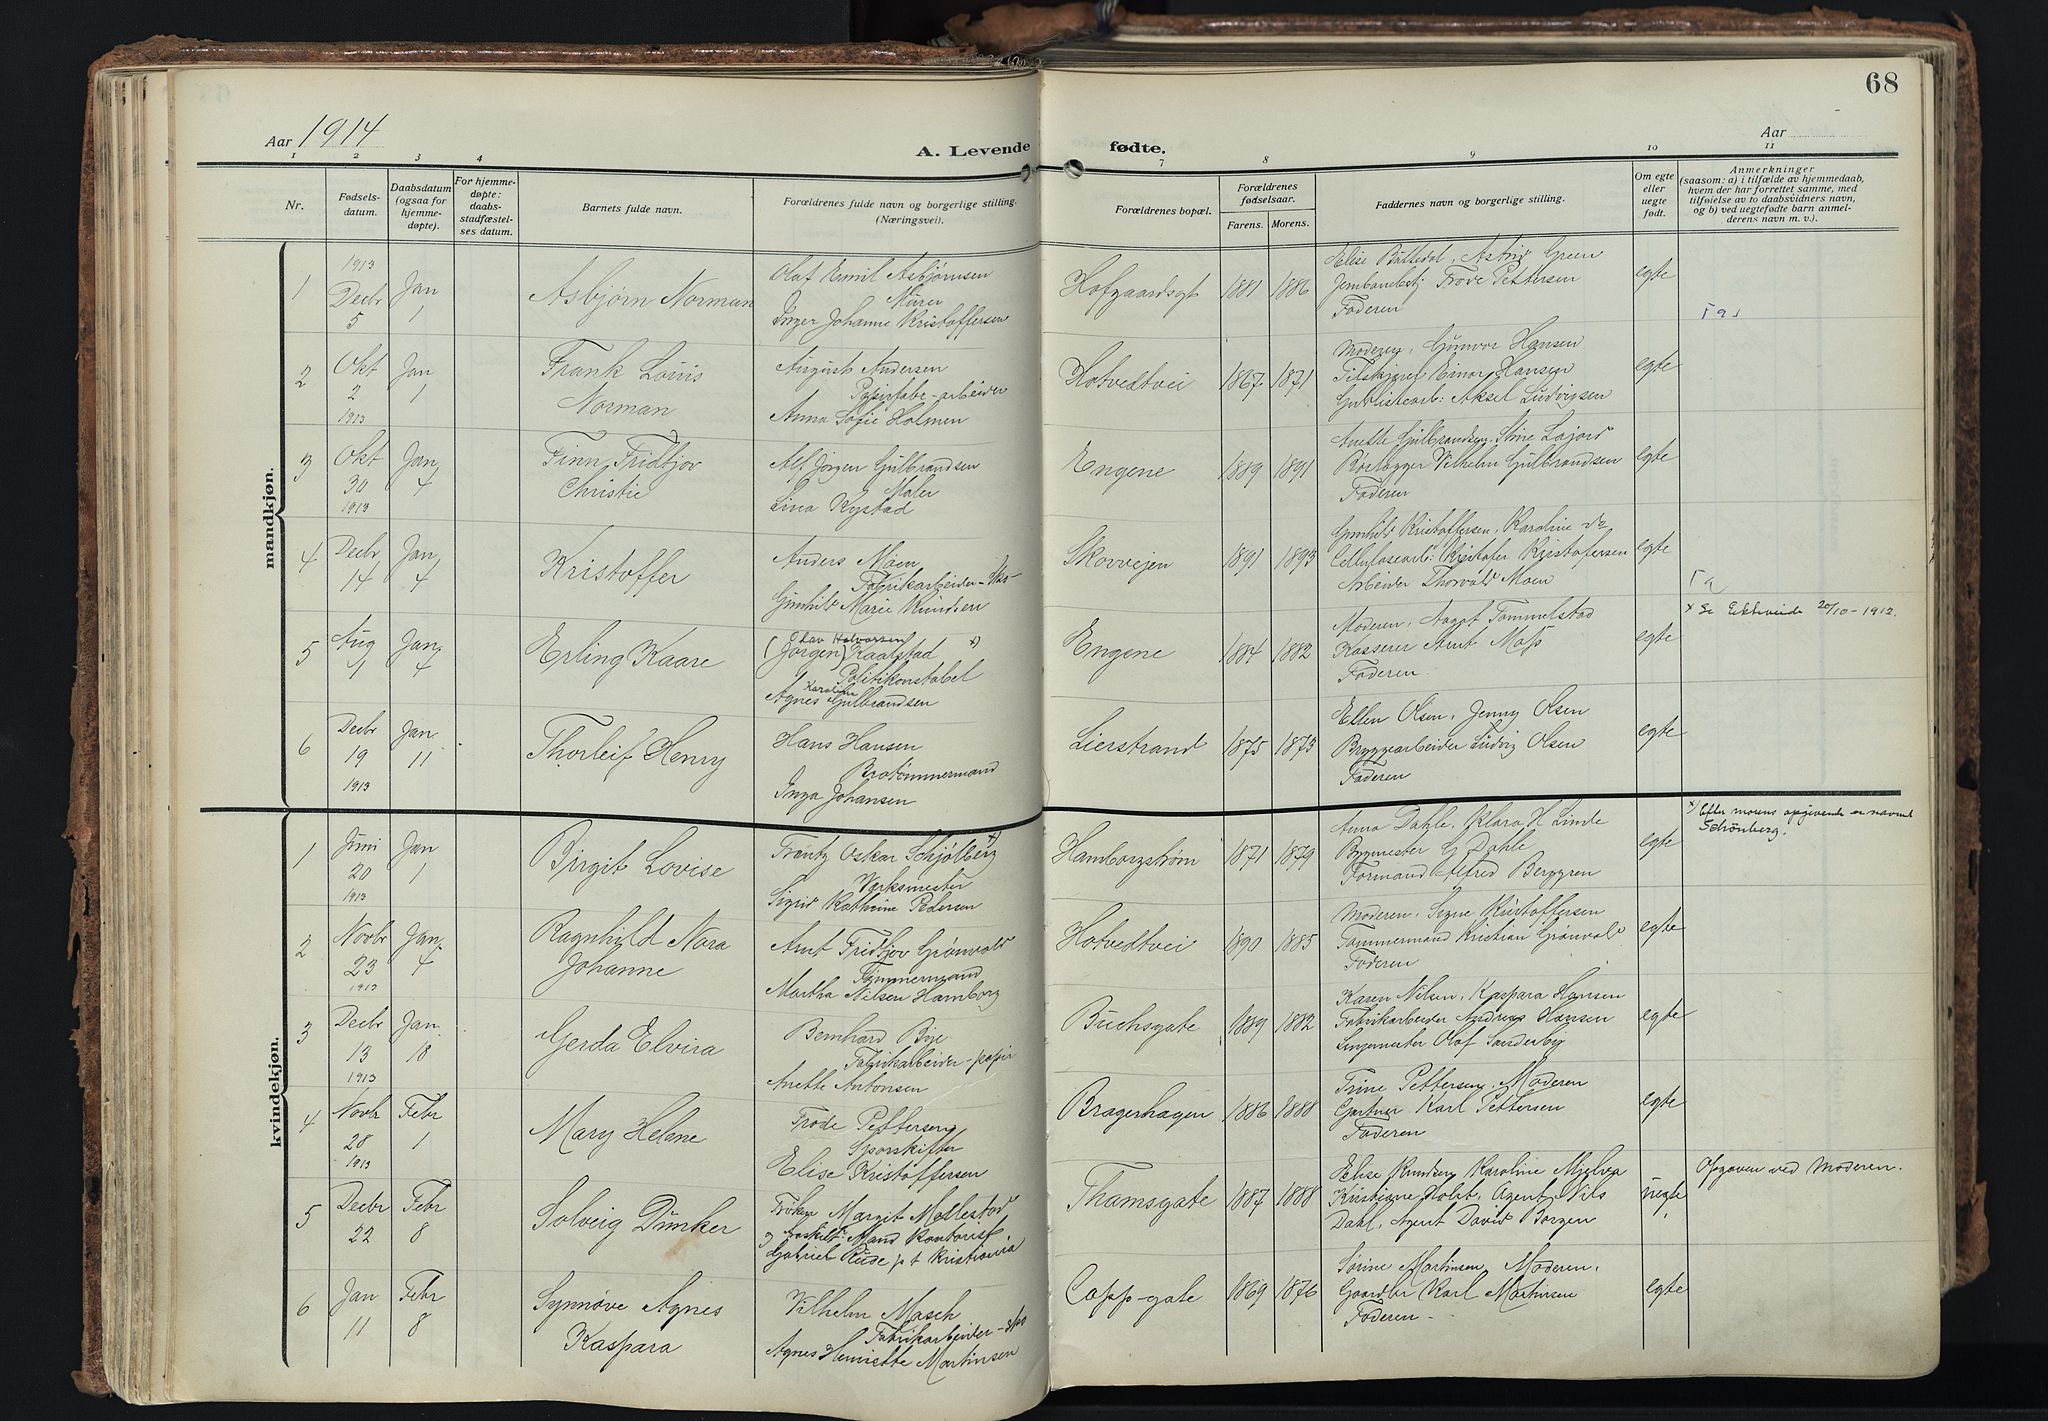 68
Aar 1914
Aar
A. Levende fødte.
1 2 3 4 7 8 9 10 11
Nr.
Fødsels-
datum.
Daabsdatum
(ogsaa for
hjemme-
døpte).
For hjemme-
døpte:
daabs-
stadfæstel-
ses datum.
Barnets fulde navn.
Forældrenes fulde navn og borgerlige stilling.
(Næringsvei).
Forældrenes bopæl.
Forældrenes
fødselsaar.
Farens. Morens.
Faddernes navn og borgerlige stilling.
Om egte
eller
uegte
født.
Anmerkninger
(saasom: a) i tilfælde av hjemmedaab,
hvem der har forrettet samme, med
tilføielse av to daabsvidners navn,
og b) ved uegtefødte barn anmel-
derens navn m. v.).
mandkjøn.
1
1913
Decbr
5
Jan
1
Asbjørn Norman
Olaf Emil Asbjørnsen
Murer
Inger Johanne Kristoffersen
Hofgaardsgt
1881 1886
Elise Battedal, Astrid Green
Jernbanebetj Frode Pettersen
Faderen
egte
2
Okt
2
1913
Jan
1
Frank Louis
Norman
August Andersen
Papirfabr-arbeider
Anna Sofie Holmen
Hotvedtvei
1867 1871
Moderen, Gunvor Hansen
Einar Hansen
Aksel Ludvigsen
egte
3
Okt
30
1913
Jan
4
Finn Fridtjov
Christie
Alf Jørgen Gulbrandsen
Maler
Lina Rystad
Engene
1889 1891
Anette Gulbrandsen, Stine
Vilhelm Gulbrandsen
Faderen
egte
4
Decbr
14
Jan
4
Kristoffer
Anders Moen
Fabrikarbeider-
Gunhild Marie Knudsen
Skovvejen
1891 1893
Gunhild Kristoffersen, Karoline do
Cellulosearb: Kristofer Kristofersen
Arbeider Thorvald Moen
egte
5
Aug
1
Jan
4
Erling Kaare
Olav Halvorsen
(Jørgen) Kaalstad x)
Politikonstabel
Karoline
Agnes Gulbrandsen
Engene
1884 1882
Moderen, Aagot Tommelstad
Kasserer Arnt Moss
Faderen
egte
x Se 20/10-1912.
6
Decbr
19
1913
Jan
11
Thorleif Henry
Hans Hansen
Brotømmermand
Inga Johansen
Lierstrand
1875 1873
Ellen Olsen, Jenny Olsen
Bryggearbeider Ludvig Olsen
Faderen
egte
kvindekjøn.
1
Juni
20
1913
Jan
1
Birgit Lovise
Frantz Oskar Schjølberg x)
Verksmester
Sigrid Kathrine Pedersen
Hamborgstrøm
1871 1879
Anna Dahle, Klara H Linde
Bygmester G Dahle
Formand Alfred Berggren
egte
x) Efter morens opgivende er navnet
Schønberg.
2
Novbr
23
1913
Jan
4
Ragnhild Nora
Johanne
Arnt Fridtjov Grønvold
Tømmermand
Martha Nilsen Hamborg
Hotvedtvei
1890 1885
Moderen, Signe Kristoffersen
Tømmermand Kristian Grønvold
Faderen
egte
3
Decbr
13
1913
Jan
18
Gerda Elvira
Bernhard Bye
Fabrikarbeider-papir
Anette Antonsen
Buchsgate
1889 1882
Karen Nilsen, Kaspara Hansen
Fabrikarbeider Andreas Hansen
Olof Sanderby
egte
4
Novbr
28
1913
Febr
1
Mary Helene
Frode Pettersen
Sporskifter
Elise Kristoffersen
Bragerhagen
1886 1888
Trine Pettersen, Moderen
Gartner Karl Pettersen
Faderen
egte
5
Decbr
22
Febr
8
Solveig Dünker
Frøken Margit Mellestad
og fraskilt Mand Kontorist
Gabriel Rude p t Kristiania
Thamsgate
1887 1888
Elise Knudsen, Karoline Mjelva
Kristiane Holst, Agent Nils
Dahl, Agent David Borgen
uegte
Opgaven ved Moderen.
6
Jan
11
Febr
8
Synnøve Agnes
Kaspara
Vilhelm Masch
Fabrikarbeider-
Agnes Henriette Martinsen
Cappgate
1869 1876
Sørine Martinsen, Moderen,
Karl Martinsen
Faderen
egte